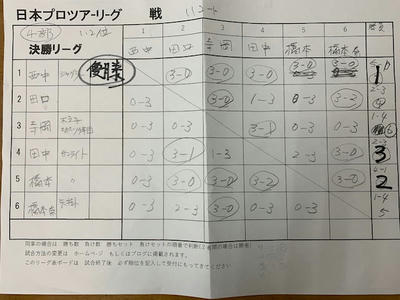 日本プロツアーリーグ 戦 11コート
4部 1.2位
決勝リーグ
1 2 3 4 5 6
西中 田口 寺岡 田中 橋本
1 西中 優勝 3-0 3-0 3-0 3-0 3-0 1
2 田口 0-3 3-0 1-3 0-3 2-3
3 寺岡 0-3 0-3 3-1 0-3 0-3
4 田中 サンライト 0-3 3-1 1-3 2-3 3-0 3
5 橋本 〃 0-3 3-0 3-0 3-2 3-0 2
6 橋本 0-3 2-3 3-0 0-3 0-3 1-4 5
同率の場合は 勝ち数 負け数 勝ちセット 負けセットの順番で判断
試合方法の変更は ホームページ もしくはブログに掲載します。
このリーグ表ボードは 試合終了後 必ず順位を記入して受付にもってきてください